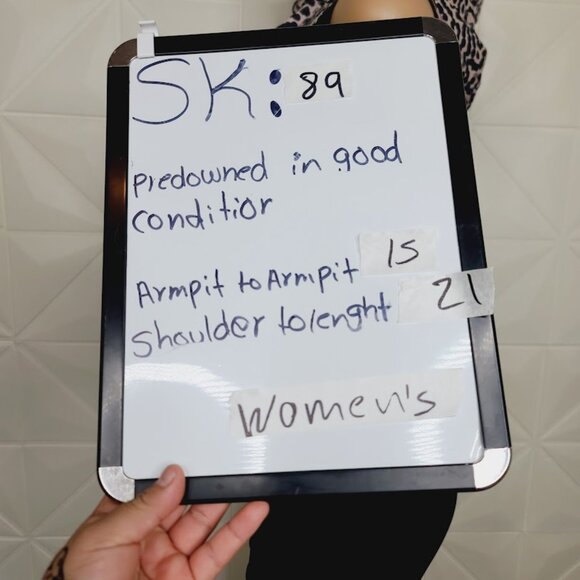 SK: 89
Predowned in good
conditior
Armpit to Armpit 15
Shoulder to lenght 21
Women's